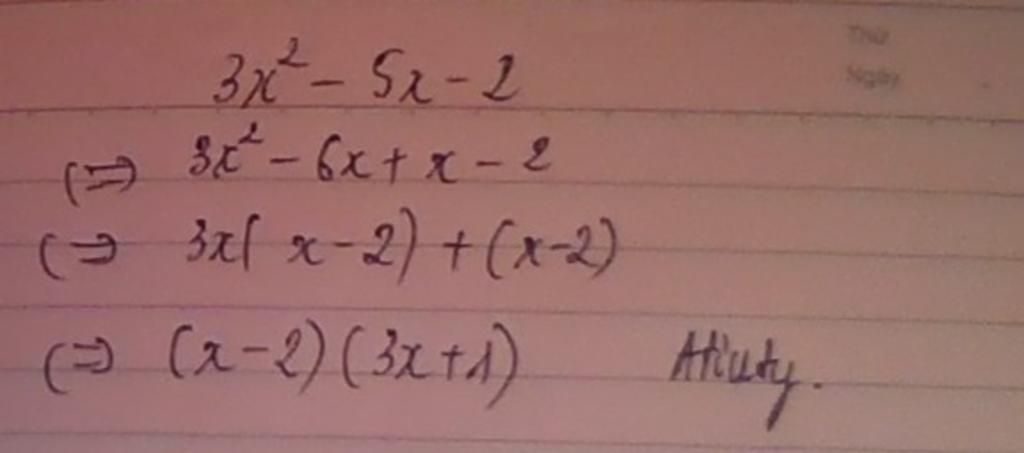 Thứ
Ngày
3x² - 5x - 2
(=) 3x² - 6x + x - 2
(=) 3x( x - 2) + (x - 2)
(=) (x - 2)(3x + 1)